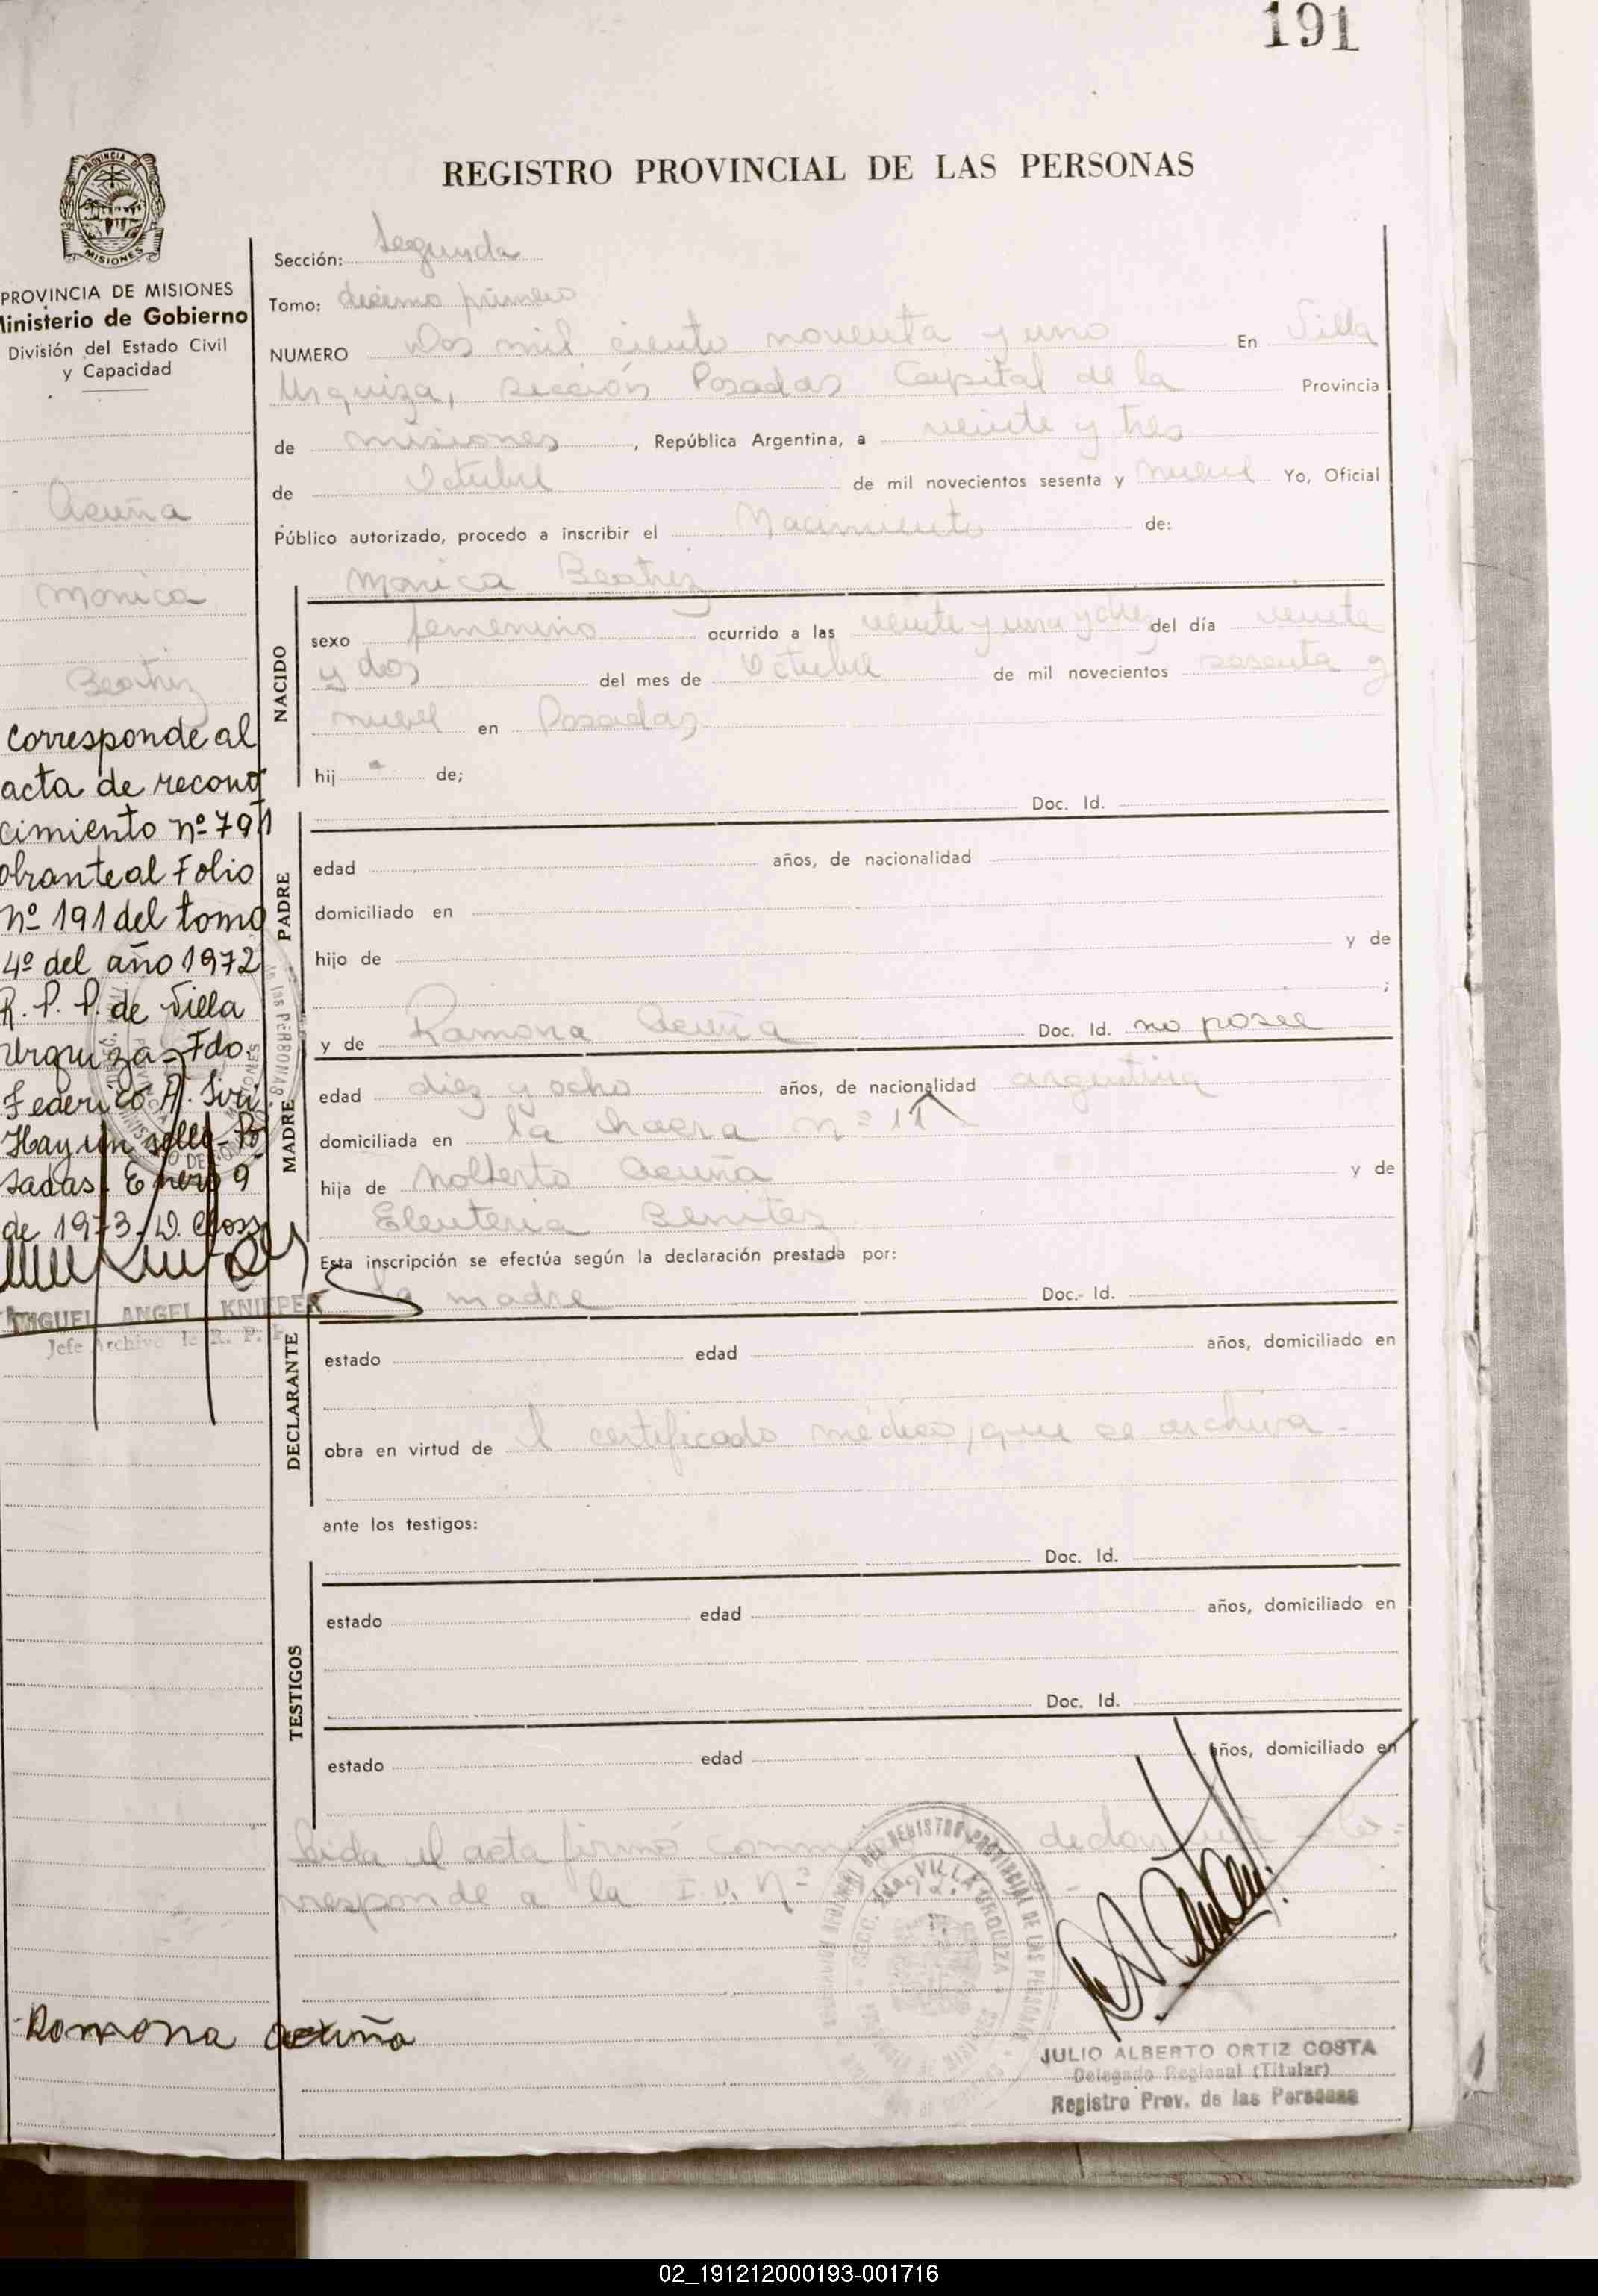 191
REGISTRO PROVINCIAL DE LAS PERSONAS
PROVINCIA DE MISIONES
PROVINCIA DE MISIONES
Ministerio de Gobierno
División del Estado Civil
y Capacidad
Acuña
Monica
Beatriz
Corresponde al
acta de recono
cimiento nº 791
obrante al Folio
nº 191 del tomo
4º del año 1972
R. P. P. de Villa
Urquiza - Fdo.
Federico A.
Hay un sello - Po
sadas. Enero 9
de 1973
MIGUEL ANGEL KNIEPER
Jefe Archivo R. P. P.
Sección: Segunda
Tomo: décimo primero
NUMERO Dos mil ciento noventa y uno En Villa
Urquiza, sección Posadas Capital de la Provincia
de misiones, República Argentina, a veinte y tres
de Octubre de mil novecientos sesenta y nueve Yo, Oficial
Público autorizado, procedo a inscribir el Nacimiento de:
Monica Beatriz
NACIDO
sexo femenino ocurrido a las veinte y una y diez del día veinte
y dos del mes de Octubre de mil novecientos sesenta y
nueve en Posadas
hij a de;
Doc. Id.
PADRE
edad años, de nacionalidad
domiciliado en
hijo de y de
;
y de Ramona Acuña Doc. Id. no posee
MADRE
edad diez y ocho años, de nacionalidad argentina
domiciliada en la chacra nº 11
hija de Nolberto Acuña y de
Eleuteria Benitez
Esta inscripción se efectúa según la declaración prestada por:
la madre Doc. Id.
DECLARANTE
estado edad años, domiciliado en
obra en virtud de l certificado médico, que se archiva.-
ante los testigos:
Doc. Id.
TESTIGOS
estado edad años, domiciliado en
Doc. Id.
estado edad años, domiciliado en
Leida el acta firmó declarante
responde a la I.U. Nº
REGISTRO PROVINCIAL DE LAS PERSONAS
VILLA URQUIZA
Ramona Acuña
JULIO ALBERTO ORTIZ COSTA
Delegado Regional (Titular)
Registro Prov. de las Personas
02_191212000193-001716